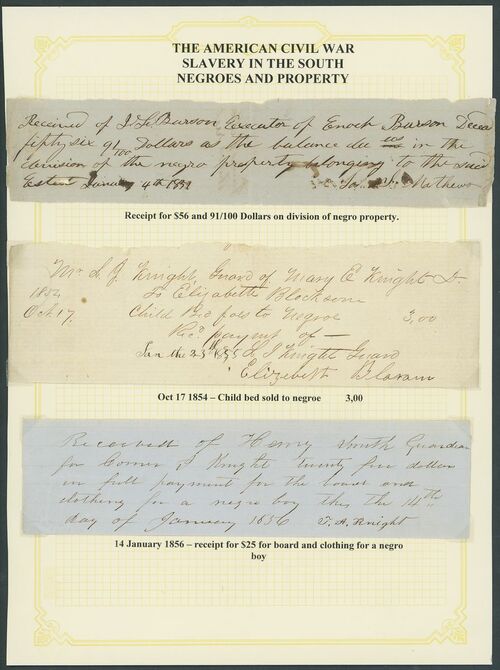 THE AMERICAN CIVIL WAR
SLAVERY IN THE SOUTH
NEGROES AND PROPERTY
Received of J L Burson Executor of Enoch Burson Decea
fifty six 91/100 Dollars as the balance due us in the
division of the negro property belonging to the said
Estate January 4th
Mathews
Receipt for $56 and 91/100 Dollars on division of negro property.
Mr. L J. Knight, Guard of Mary E Knight Dr.
1854 To Elizabeth
Oct 17. Child Bed to Negroe 3,00
Rec'd payment of
L J Knight Guard
Elizebeth
Oct 17 1854 – Child bed sold to negroe 3,00
Received of Henry Smith Guardian
for J Knight twenty five dollars
in full payment for the and
clothing for a negro boy this the 14th
day of January 1856 T. A. Knight
14 January 1856 – receipt for $25 for board and clothing for a negro
boy